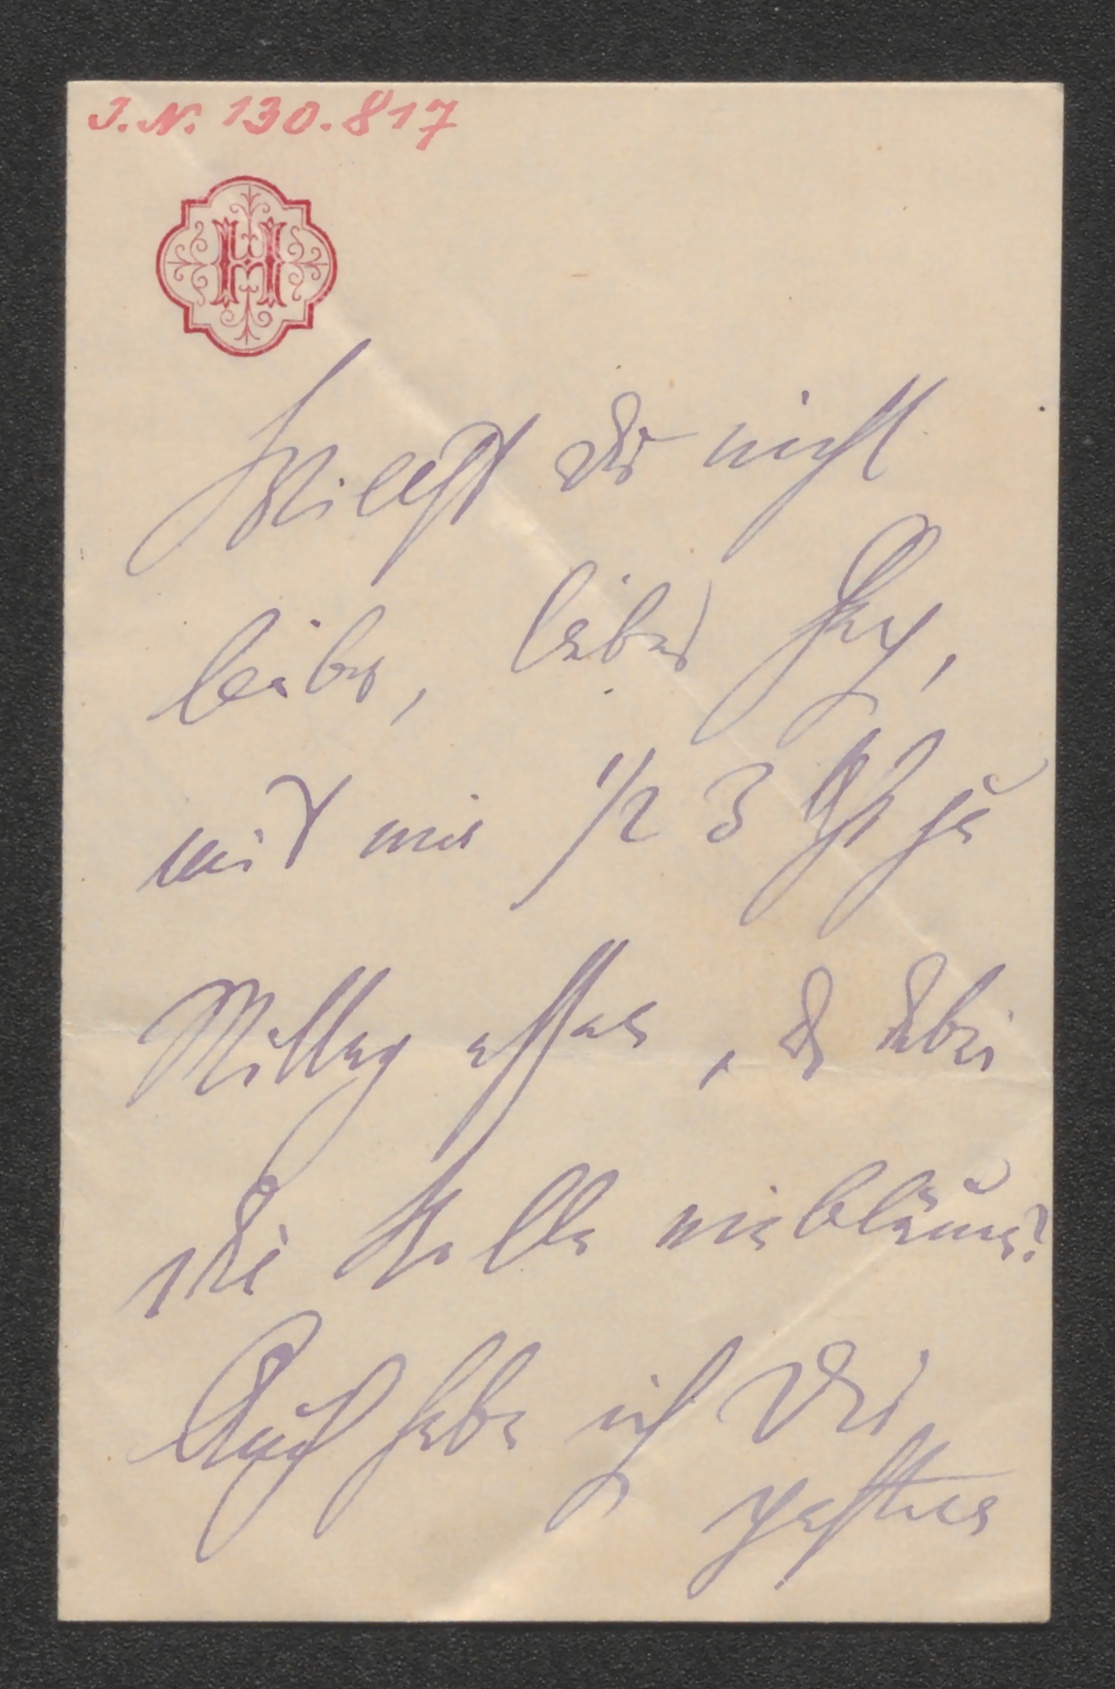 I.N. 130.817
H
Willst Du nicht
lieber, lieber
mit mir 1/2 3 Uhr zu
Mittag essen, da dabei
die Stelle
Auch habe ich Dir
gestern